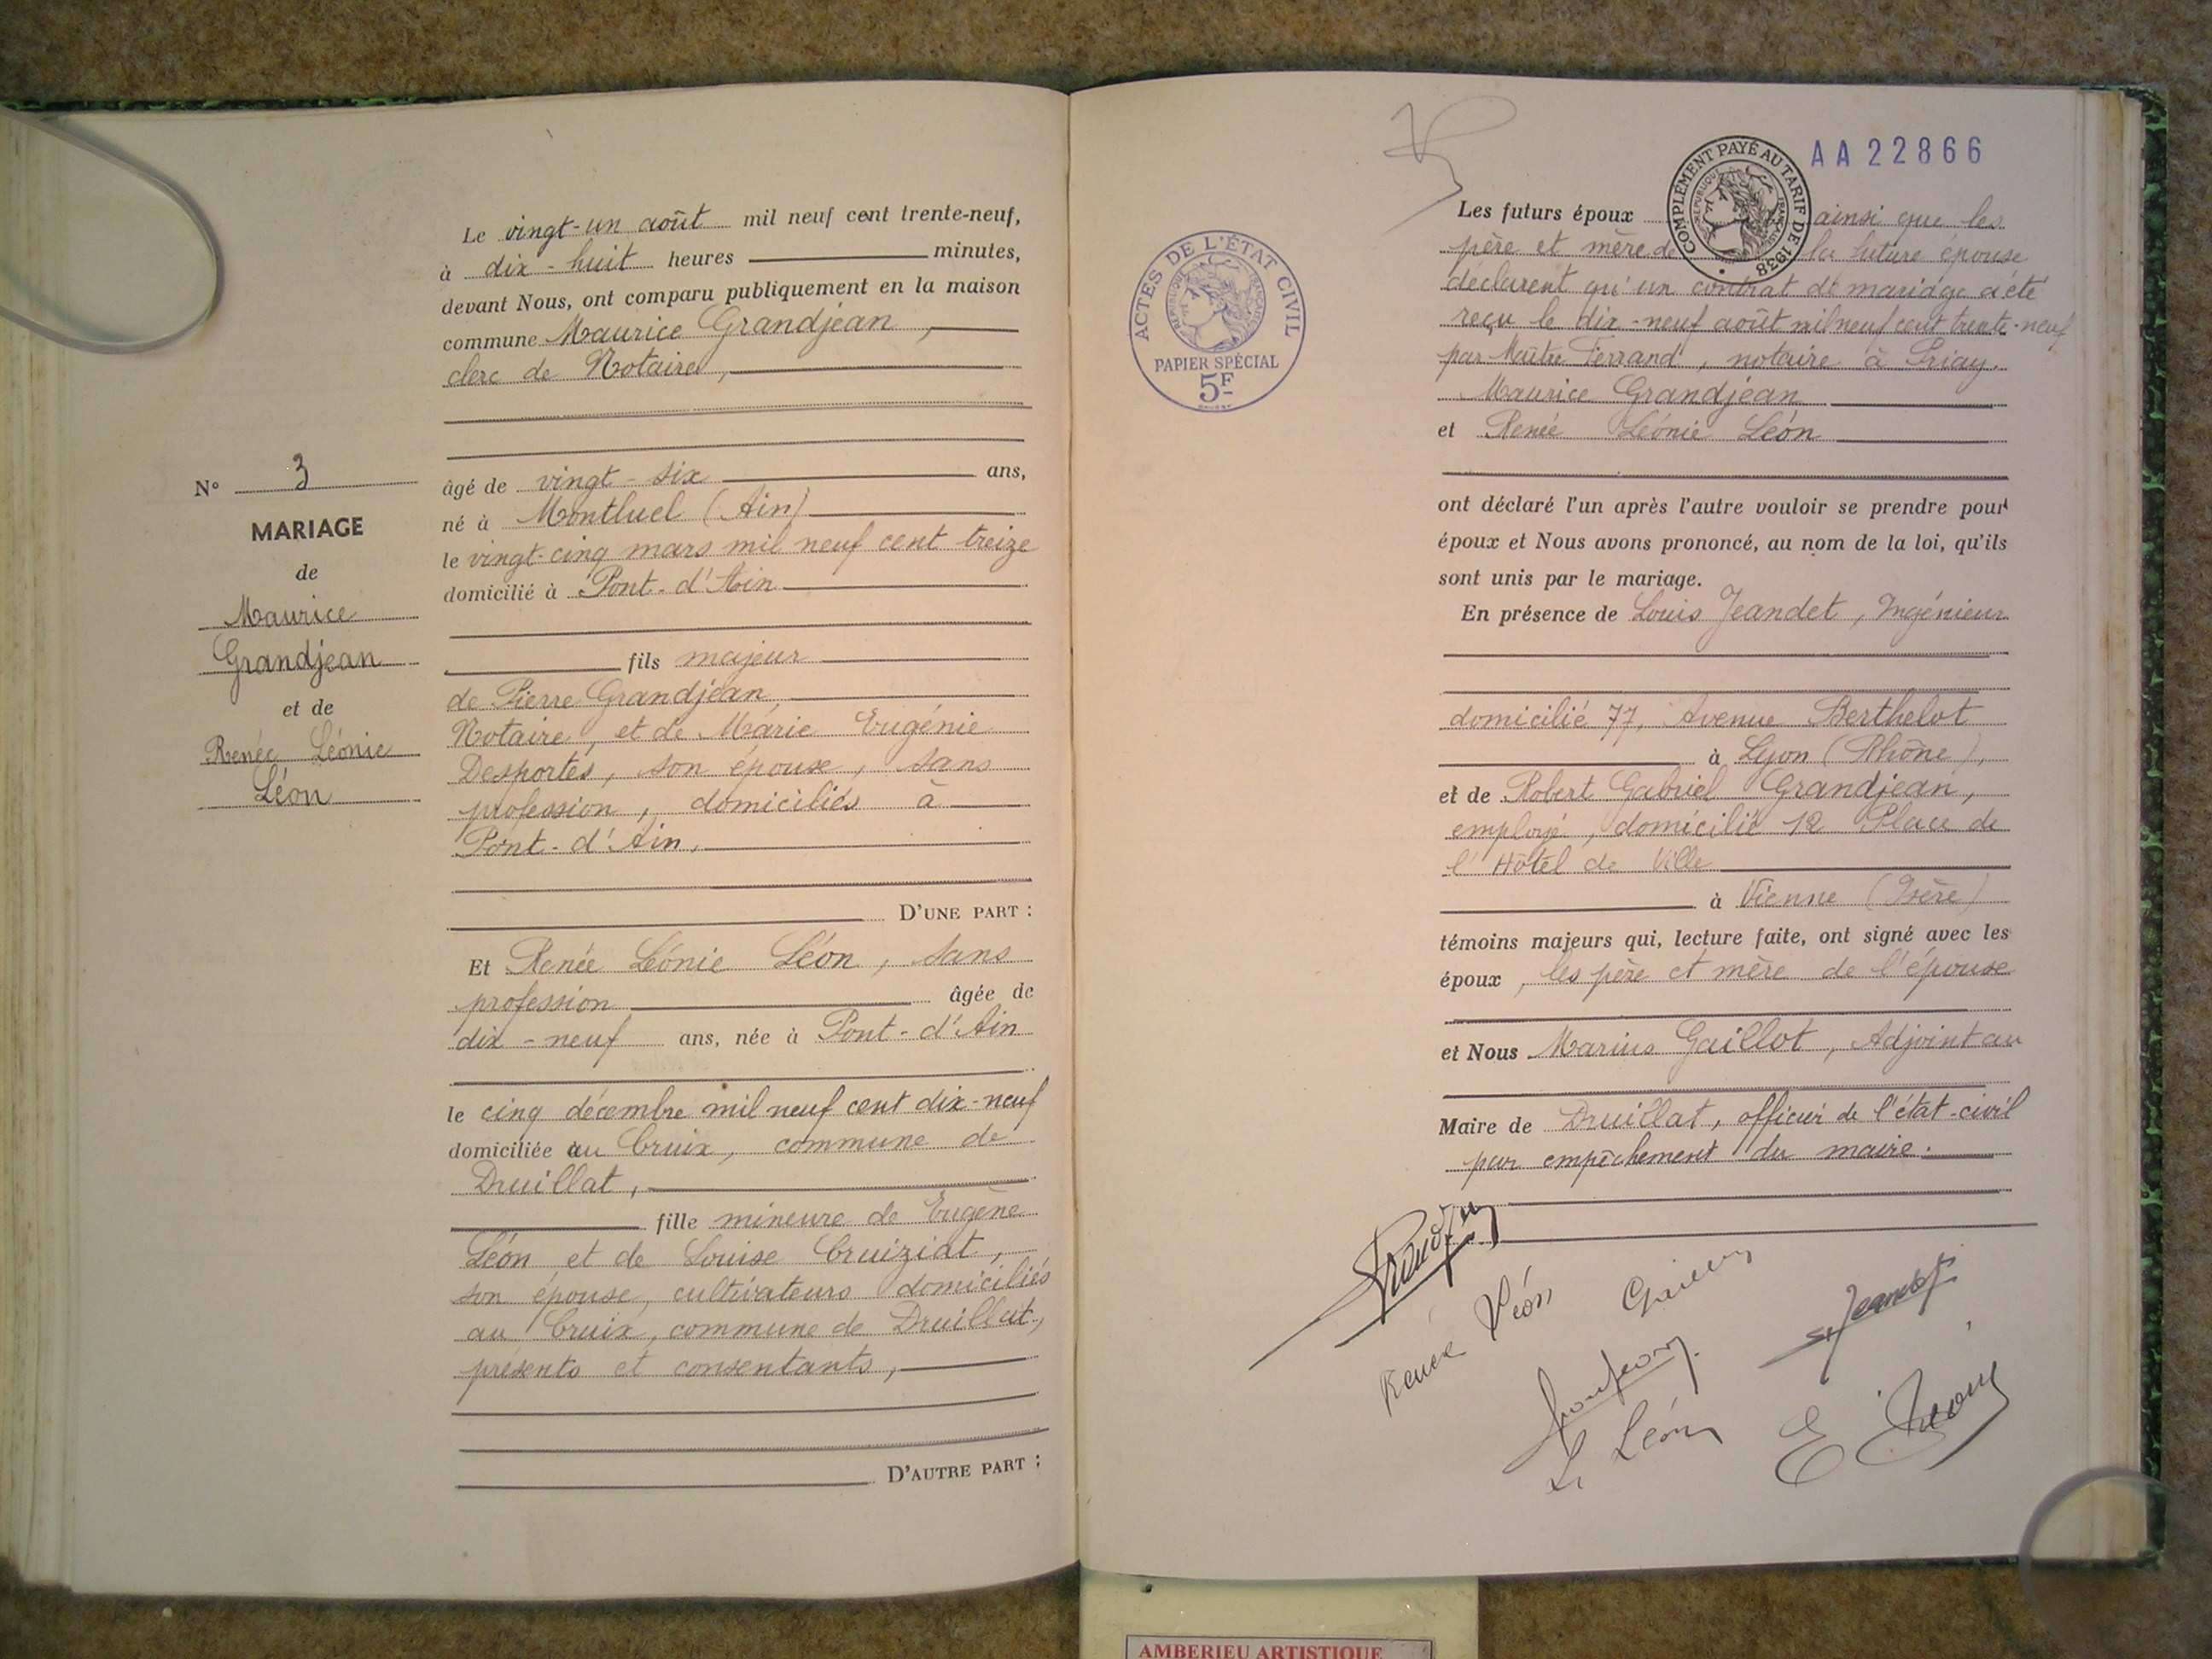 N° 3
MARIAGE
de
Maurice
Grandjean
et de
Renée Léonie
Léon
Le vingt-un août mil neuf cent trente-neuf,
à dix-huit heures minutes,
devant Nous, ont comparu publiquement en la maison
commune Maurice Grandjean,
clerc de Notaire,
âgé de vingt-six ans,
né à Montluel (Ain)
le vingt-cinq mars mil neuf cent treize
domicilié à Pont-d'Ain
fils majeur
de Pierre Grandjean,
Notaire, et de Marie Eugénie
Desportes, son épouse, sans
profession, domiciliés à
Pont-d'Ain,
D'UNE PART :
Et Renée Léonie Léon, sans
profession âgée de
dix-neuf ans, née à Pont-d'Ain
le cinq décembre mil neuf cent dix-neuf
domiciliée au Cruix, commune de
Druillat,
fille mineure de Eugène
Léon et de Louise Cruiziat,
son épouse, cultivateurs domiciliés
au Cruix, commune de Druillat,
présents et consentants,
D'AUTRE PART :
ACTES DE L'ÉTAT CIVIL
RÉPUBLIQUE FRANÇAISE
PAPIER SPÉCIAL
5F
COMPLÉMENT PAYÉ AU TARIF DE 1938
RÉPUBLIQUE FRANÇAISE
AA22866
Les futurs époux ainsi que les
père et mère de la future épouse
déclarent qu'un contrat de mariage a été
reçu le dix-neuf août mil neuf cent trente-neuf
par Maître Ferrand, notaire à Priay.
Maurice Grandjean
et Renée Léonie Léon
ont déclaré l'un après l'autre vouloir se prendre pour
époux et Nous avons prononcé, au nom de la loi, qu'ils
sont unis par le mariage.
En présence de Louis Jeandet, Ingénieur
domicilié 77, Avenue Berthelot
à Lyon (Rhône),
et de Robert Gabriel Grandjean,
employé, domicilié 12 Place de
l'Hôtel de Ville
à Vienne (Isère)
témoins majeurs qui, lecture faite, ont signé avec les
époux, les père et mère de l'épouse
et Nous Marius Gaillot, Adjoint au
Maire de Druillat, officier de l'état-civil
par empêchement du maire.
Renée Léon
Jeandet
L Léon
E Léon
AMBERIEU ARTISTIQUE